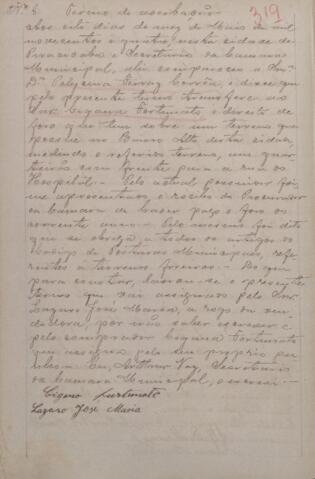 Nº 6 Termo de
319
Aos sete dias do mez de Maio de mil
novecentos e quatro, nesta cidade de
Piracicaba e Secretaria da Camara
Municipal, ahi compareceu a Snra.
D. Ferraz Corrêa, e disse que
pelo presente termo transfere ao
Snr. Cigano Fortunato o direito de
fôro que tem sobre um terreno que
possue no Bairro Alto desta cidade,
medindo o referido terreno, um quar-
teirão com frente para a rua do
Hospital. - Pelo actual possuidor foi
me apresentado o recibo da Procuradoria
da Camara de haver pago o fôro do
corrente anno. - Pelo mesmo foi dito
que se obriga a todos os artigos do
Codigo de Posturas Municipaes, refe-
rentes a terrenos foreiros. - Do que
para constar, lavrou-se o presente
termo que vai assignado pelo Snr.
Lazaro José Maria, a rogo da ven-
dedora, por não saber escrever e
pelo comprador Cigano Fortunato
que assigna pelo seu proprio pu-
nho. - Eu, Arthur Vaz, Secretario
da Camara Municipal, o escrevi. -
Cigano Furtunato
Lazaro José Maria